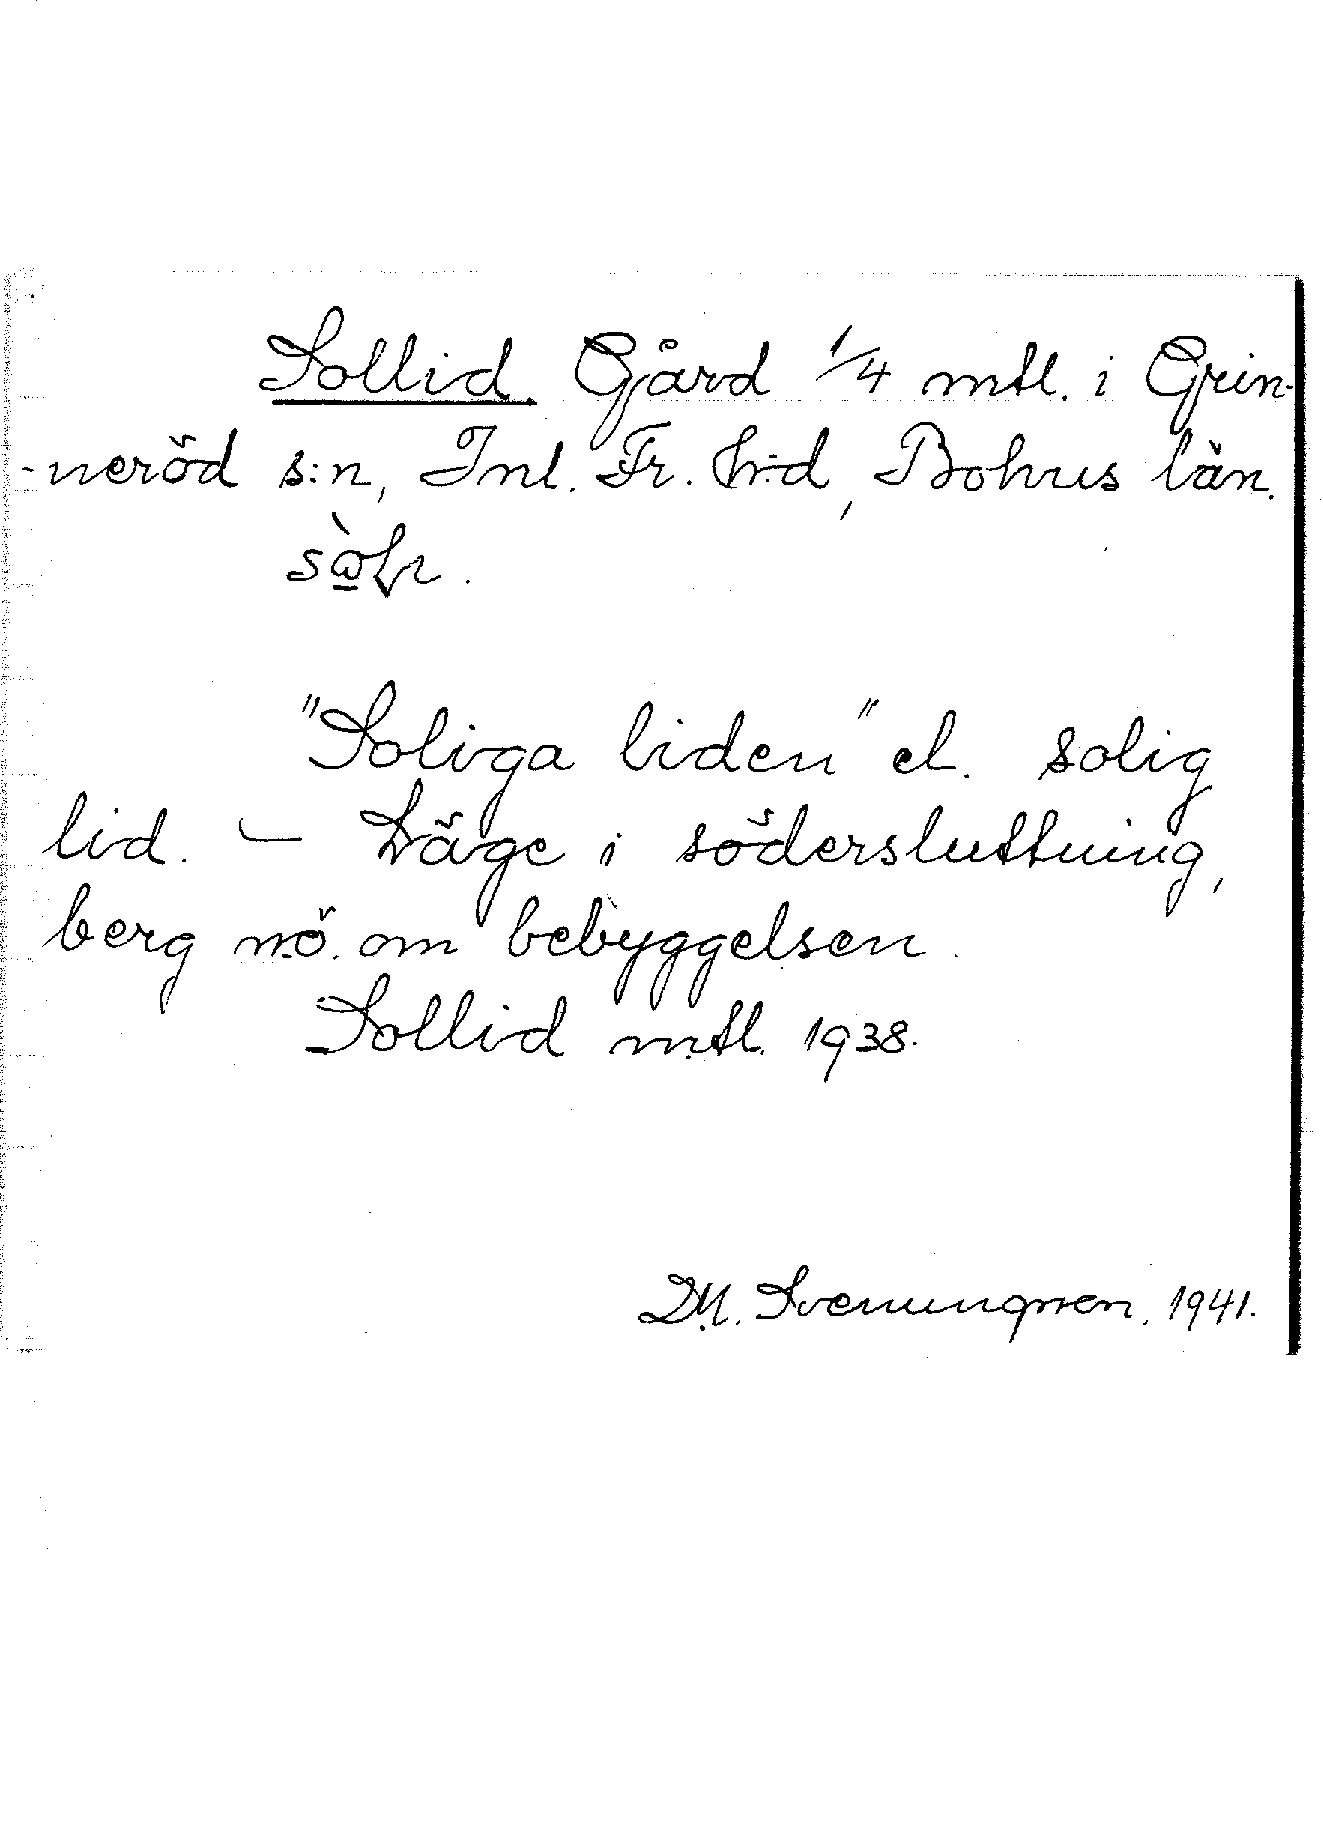 Sollid. Gård 1/4 mtl. i Grin-
-neröd s:n, Inl. Fr. h:d, Bohus län.
"Soliga liden" el. solig
lid. — Läge i södersluttning,
berg nö. om bebyggelsen.
Sollid mtl. 1938.
D.M. Svenungsen. 1941.